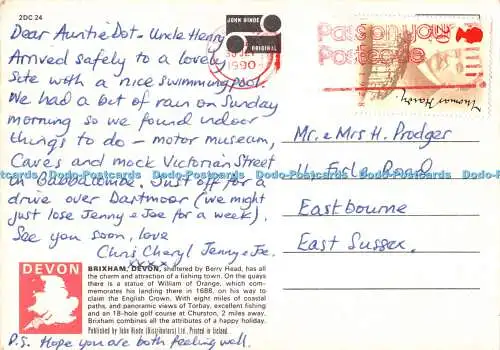 2DC 24
Dear Auntie Dot + Uncle Henry
Arrived safely to a lovely
site with a nice swimming pool.
We had a bit of rain on Sunday
morning so we found indoor
things to do – motor museum,
Caves and mock Victorian Street
in Babbacombe. Just off for a
drive over Dartmoor (we might
just lose Jenny + Joe for a week).
See you soon, love
Chris Cheryl Jenny + Joe.
xxxx
JOHN HINDE
ORIGINAL
1990
Pass on your
Postcode
20
Thomas Hardy
Mr. + Mrs H. Prodger
11, Erle Road
Eastbourne
East Sussex.
DEVON
BRIXHAM, DEVON, sheltered by Berry Head, has all
the charm and attraction of a fishing town. On the quays
there is a statue of William of Orange, which com-
memorates his landing there in 1688, on his way to
claim the English Crown. With eight miles of coastal
paths, and panoramic views of Torbay, excellent fishing
and an 18-hole golf course at Churston, 2 miles away.
Brixham combines all the attributes of a happy holiday.
Published by John Hinde (Distributors) Ltd. Printed in Ireland.
P.S. Hope you are both feeling well.
x-Postcards